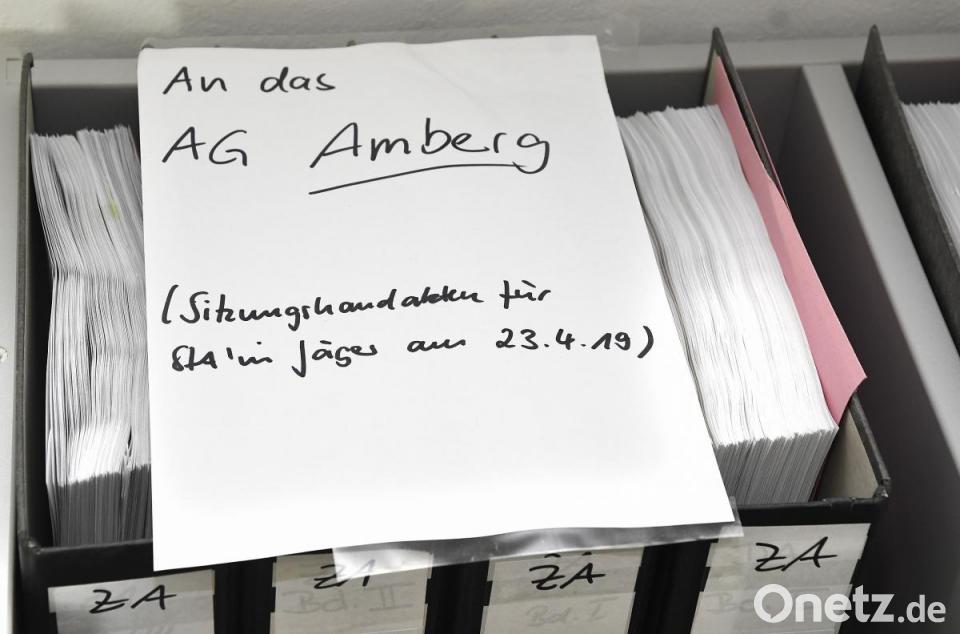 An das
AG Amberg
(Sitzungshandakten für
StA'in Jäger am 23.4.19)
ZA
ZA
ZA
ZA
Bd. II
Bd. I
Onetz.de